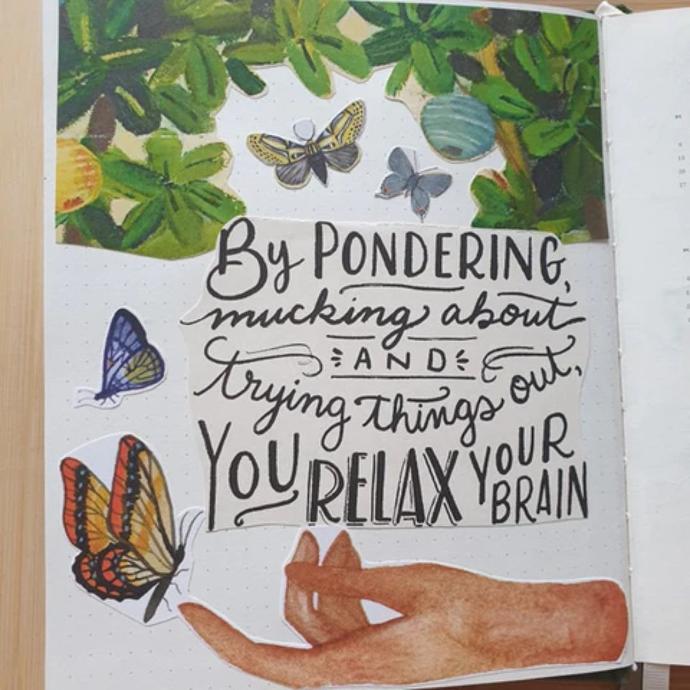 By PONDERING,
mucking about
AND
trying things out,
YOU RELAX YOUR
BRAIN